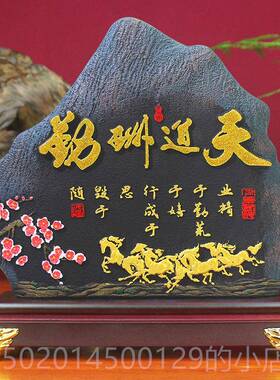 天道酬勤
业精
于勤荒
于嬉
行成于
思
毁于
随
502014500129的小店